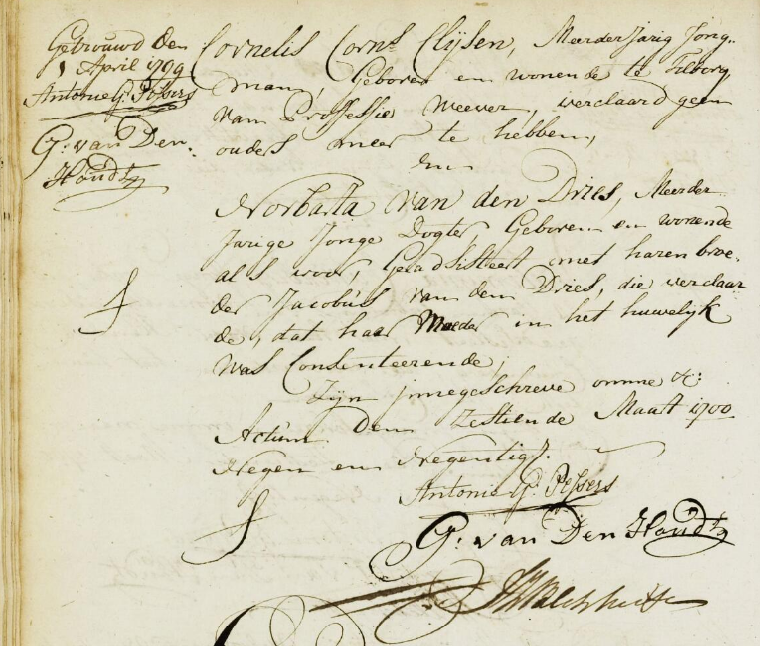 Getrouwd den
1 April 1799
Antonie G. Pessers
G. van Den
Houdt
Cornelis Corns Clijsen, Meerder Jarig Jong-
man, Geboren en wonende te Tilborg,
van Proffessie Weever, verclaard geen
ouders meer te hebben,
En
Norbarta van den Dries, Meerder
Jarige Jonge Dogter Geboren en wonende
als voor, Geadsisteert met haren broe-
der Jacobus van den Dries, die verclaar
de, dat haar Moeder in het huwelijk
was Consenteerende,
Zijn innegeschreve omme &c:
Actum Den Zestiende Maart 1700
Negen en Negentig.
Antonie G. Pessers
G. van Den Houdt